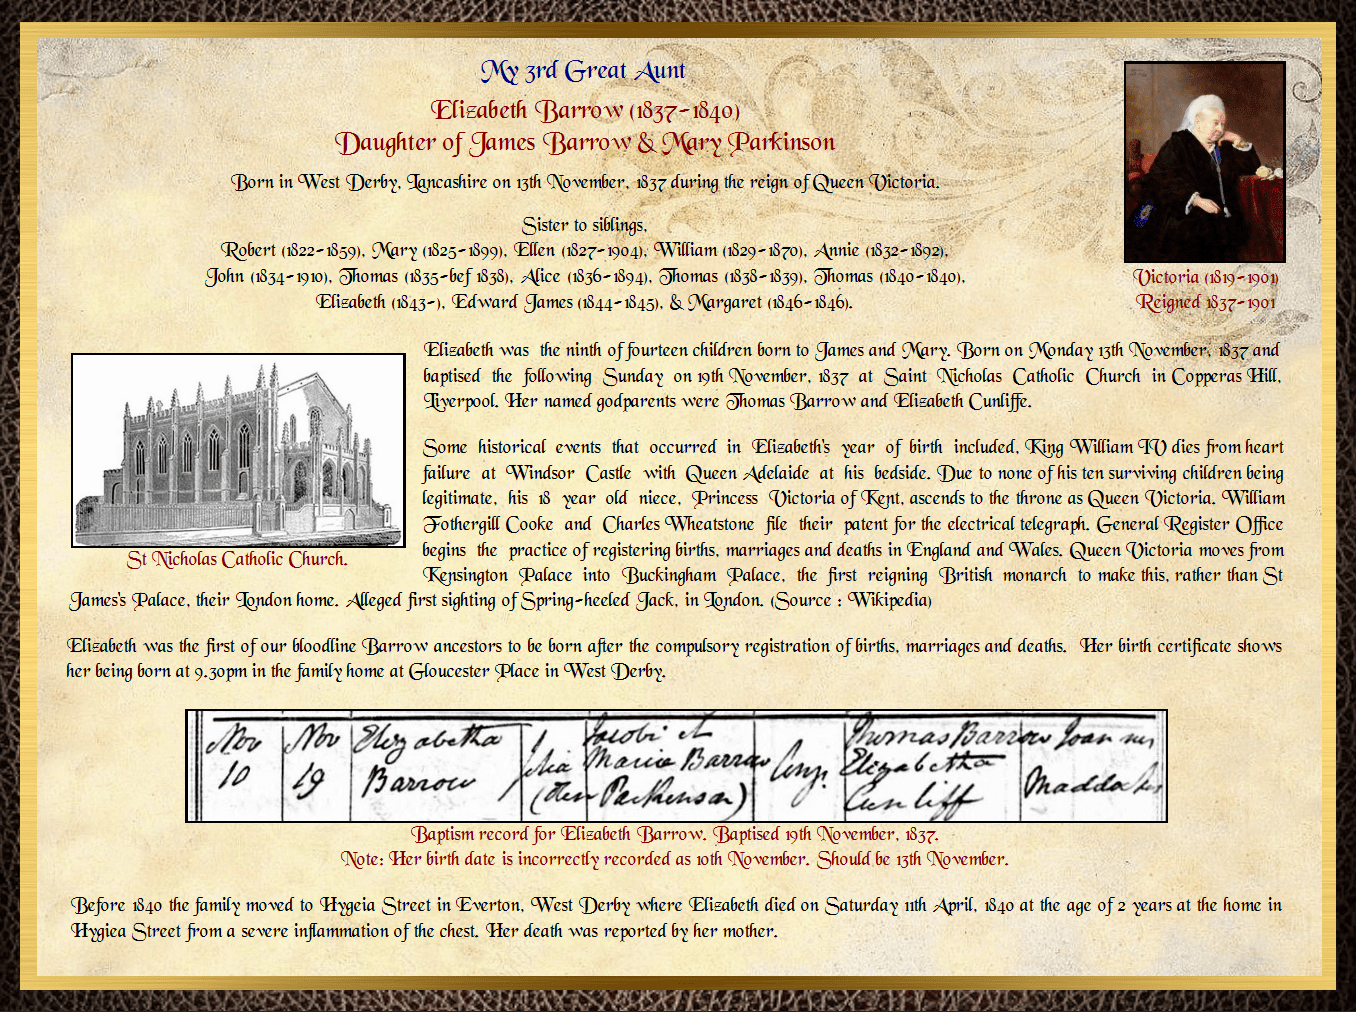 My 3rd Great Aunt
Elizabeth Barrow (1837-1840)
Daughter of James Barrow & Mary Parkinson
Born in West Derby, Lancashire on 13th November, 1837 during the reign of Queen Victoria.
Sister to siblings,
Robert (1822-1859), Mary (1825-1899), Ellen (1827-1904), William (1829-1870), Annie (1832-1892),
John (1834-1910), Thomas (1835-bef 1838), Alice (1836-1894), Thomas (1838-1839), Thomas (1840-1840),
Elizabeth (1843-), Edward James (1844-1845), & Margaret (1846-1846).
Victoria (1819-1901)
Reigned 1837-1901
Elizabeth was the ninth of fourteen children born to James and Mary. Born on Monday 13th November, 1837 and
baptised the following Sunday on 19th November, 1837 at Saint Nicholas Catholic Church in Copperas Hill,
Liverpool. Her named godparents were Thomas Barrow and Elizabeth Cunliffe.
Some historical events that occurred in Elizabeth's year of birth included, King William IV dies from heart
failure at Windsor Castle with Queen Adelaide at his bedside. Due to none of his ten surviving children being
legitimate, his 18 year old niece, Princess Victoria of Kent, ascends to the throne as Queen Victoria. William
Fothergill Cooke and Charles Wheatstone file their patent for the electrical telegraph. General Register Office
begins the practice of registering births, marriages and deaths in England and Wales. Queen Victoria moves from
Kensington Palace into Buckingham Palace, the first reigning British monarch to make this, rather than St
James's Palace, their London home. Alleged first sighting of Spring-heeled Jack, in London. (Source : Wikipedia)
St Nicholas Catholic Church.
Elizabeth was the first of our bloodline Barrow ancestors to be born after the compulsory registration of births, marriages and deaths. Her birth certificate shows
her being born at 9.30pm in the family home at Gloucester Place in West Derby.
Nov Nov Elizabetha Jacobi et Thomas Barrow Joannes
10 19 Barrow filia Maria Barrow Elizabetha
Parkinson) Cunliff
Baptism record for Elizabeth Barrow. Baptised 19th November, 1837.
Note: Her birth date is incorrectly recorded as 10th November. Should be 13th November.
Before 1840 the family moved to Hygeia Street in Everton, West Derby where Elizabeth died on Saturday 11th April, 1840 at the age of 2 years at the home in
Hygiea Street from a severe inflammation of the chest. Her death was reported by her mother.